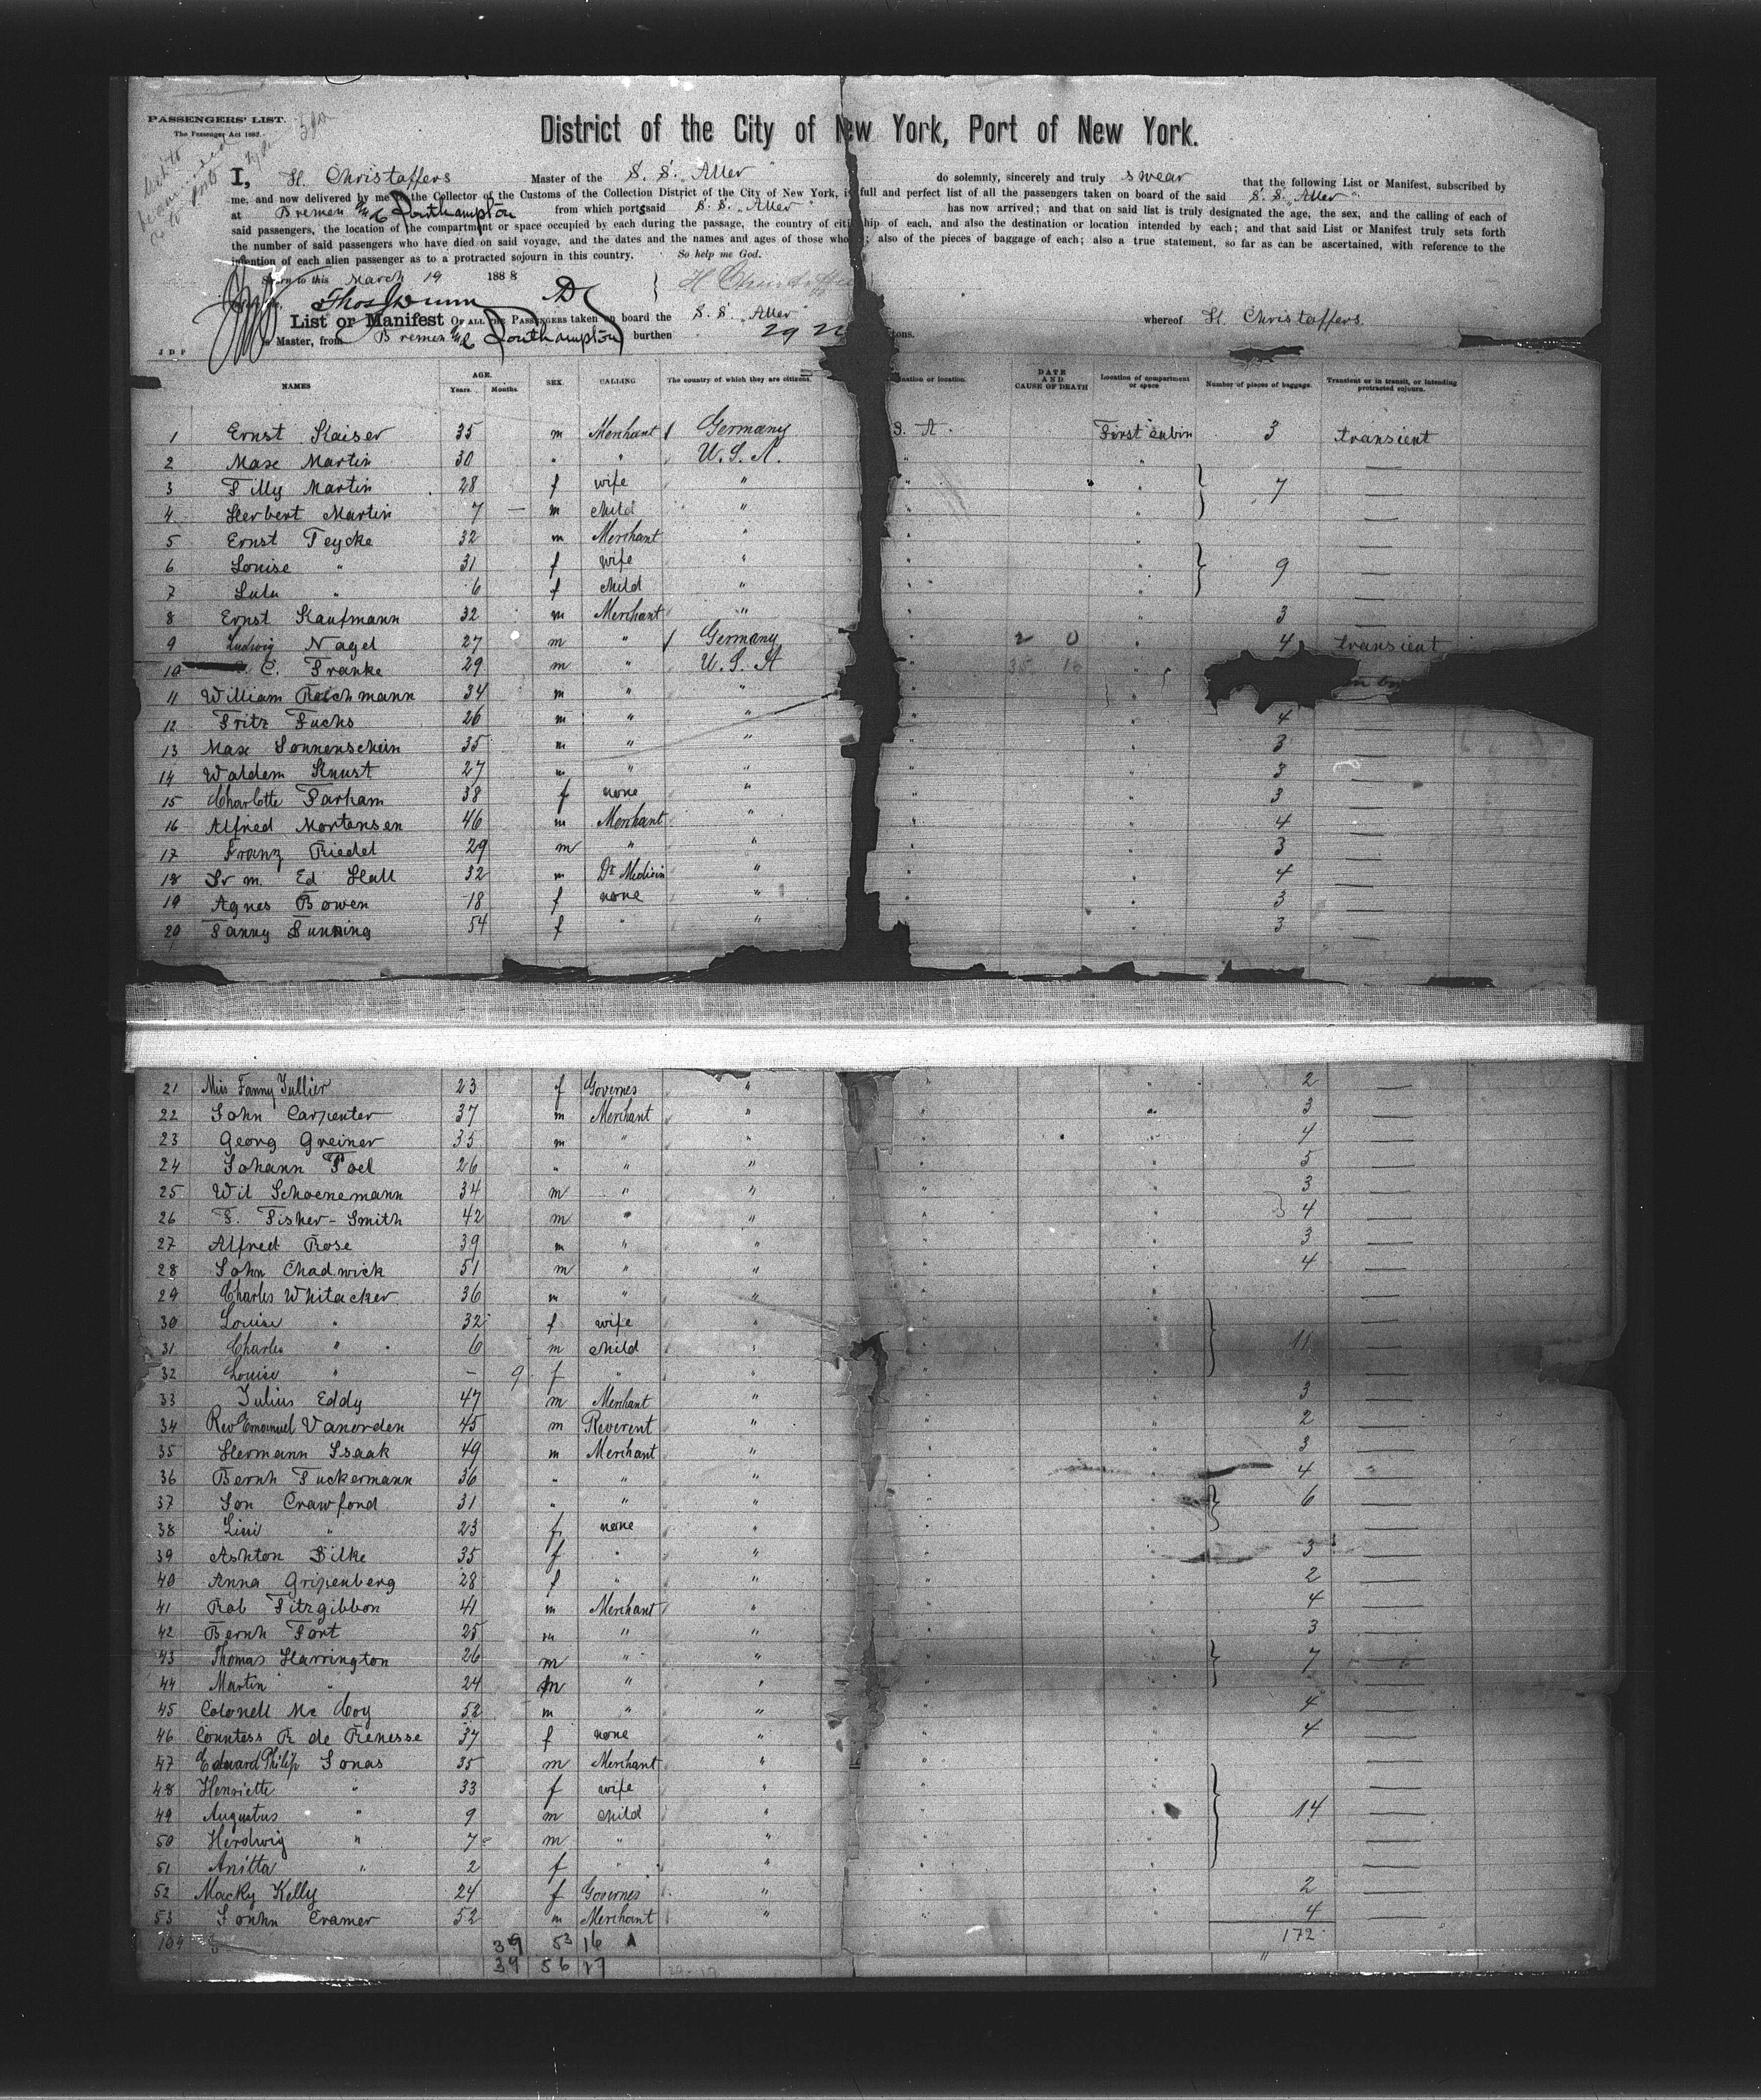 PASSENGERS' LIST.
The Passenger Act 1882.
District of the City of New York, Port of New York.
I, H. Christoffers Master of the S. S. "Aller" do solemnly, sincerely and truly swear that the following List or Manifest, subscribed by
me, and now delivered by me to the Collector of the Customs of the Collection District of the City of New York, is full and perfect list of all the passengers taken on board of the said S. S. "Aller"
at Bremen & Southampton from which ports said S. S. "Aller" has now arrived; and that on said list is truly designated the age, the sex, and the calling of each of
said passengers, the location of the compartment or space occupied by each during the passage, the country of citizenship of each, and also the destination or location intended by each; and that said List or Manifest truly sets forth
the number of said passengers who have died on said voyage, and the dates and the names and ages of those who; also of the pieces of baggage of each; also a true statement, so far as can be ascertained, with reference to the
intention of each alien passenger as to a protracted sojourn in this country. So help me God.
Sworn to this March 19 1888 H Christoffers
List or Manifest OF ALL THE PASSENGERS taken on board the S. S. "Aller" whereof H. Christoffers
is Master, from Bremen & Southampton burthen 29 tons.
J D P
NAMES AGE. Years. Months. SEX. CALLING The country of which they are citizens. nation or location. DATE AND CAUSE OF DEATH Location of compartment or space Number of pieces of baggage. Transient or in transit, or intending protracted sojourn.
1 Ernst Kaiser 35 m Merchant Germany S. A. First cabin 3 transient
2 Max Martin 30 " " U. S. A. "
3 Tilly Martin 28 f wife " " " 7
4 Herbert Martin 7 — m child " " "
5 Ernst Teycke 32 m Merchant " " "
6 Louise " 31 f wife " " " 9
7 Lulu " 6 f child " " "
8 Ernst Kaufmann 32 m Merchant " " " 3
9 Ludwig Nagel 27 m " Germany " 2 0 " 4 transient
10 C. Franke 29 m " U. S. A " 35 16 "
11 William Reichmann 34 m " " " "
12 Fritz Fuchs 26 m " " " " 4
13 Max Sonnenschein 35 m " " " " 3
14 Waldem Knust 27 m " " " " 3
15 Charlotte Farham 38 f none " " " 3
16 Alfred Mortensen 46 m Merchant " " " 4
17 Franz Riedel 29 m " " " " 3
18 Dr m. Ed Hall 32 m Dr Medicin " " " 4
19 Agnes Bowen 18 f none " " " 3
20 Fanny Dunning 54 f " " " " 3
21 Miss Fanny Jullier 23 f Governes " " " 2
22 John Carpenter 37 m Merchant " " " 3
23 Georg Greiner 35 m " " " " 4
24 Johann Poel 26 " " " " " 5
25 Wil Schoenemann 34 m " " " " 3
26 F. Fisher-Smith 42 m " " " " 4
27 Alfred Rose 39 m " " " " 3
28 John Chadwick 51 m " " " " 4
29 Charles Whitacker 36 m " " " "
30 Louise " 32 f wife " " "
31 Charles " 6 m child " " " 11
32 Louise " — 9 f " " " "
33 Julius Eddy 47 m Merchant " " " 3
34 Rev Emanuel Vanorden 45 m Reverent " " " 2
35 Hermann Isaak 49 m Merchant " " " 3
36 Bernh Tuckermann 36 " " " " " 4
37 Jon Crawfond 31 " " " " " 6
38 Lini " 23 f none " " "
39 Ashton Dilke 35 f " " " " 3
40 Anna Gripenberg 28 f " " " " 2
41 Rob Fitzgibbon 41 m Merchant " " " 4
42 Bernh Fort 25 m " " " " 3
43 Thomas Harrington 26 m " " " " 7
44 Martin " 24 m " " " "
45 Colonell Mc Coy 52 m " " " " 4
46 Countess R de Renesse 37 f none " " " 4
47 Eduard Philip Jonas 35 m Merchant " " "
48 Henriette " 33 f wife " " "
49 Augustus " 9 m child " " " 14
50 Herdwig " 7 m " " " "
51 Anitta " 2 f " " " "
52 Macky Kelly 24 f Governes " " " 2
53 Jonhn Cramer 52 m Merchant " " " 4
109 39 53 16 172
39 56 17